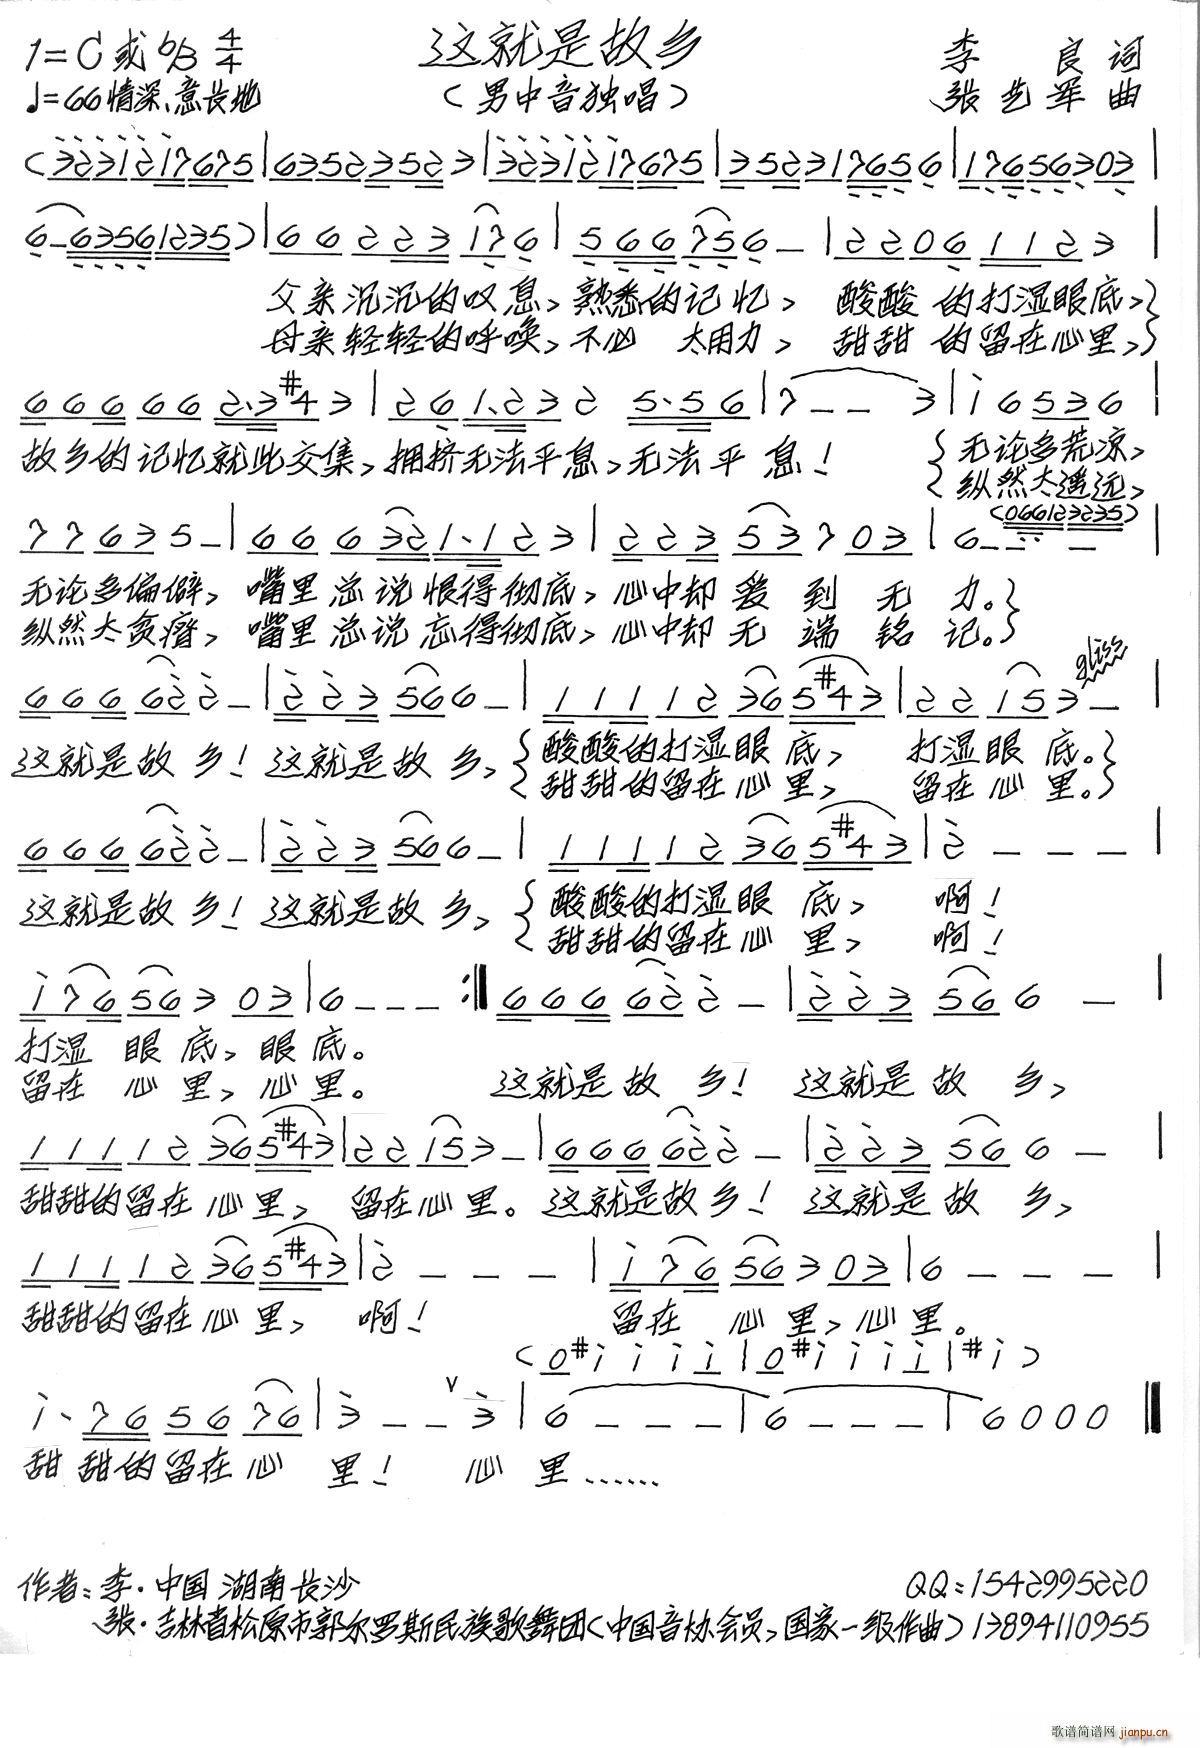 这就是故乡
1=C或bB 4/4
李良词
♩=66情深、意长地
(男中音独唱)
张艺军曲
(3231217675|63523523|3231217675|352317656|17656303|
6-63561235)|66223176|566756-|22061123|
父亲沉沉的叹息,熟悉的记忆,酸酸的打湿眼底,
母亲轻轻的呼唤,不必太用力,甜甜的留在心里,
666662·3#43|261·2325·56|7--3|i6536|
故乡的记忆就此交集,拥挤无法平息,无法平息!
无论多荒凉,
纵然太遥远,
(066123235)
77635-|666321·123|22353703|6---|
无论多偏僻,嘴里总说恨得彻底,心中却爱到无力。
纵然太贪瘠,嘴里总说忘得彻底,心中却无端铭记。
gliss
666622-|223566-|11112365#43|22153-|
这就是故乡!这就是故乡,酸酸的打湿眼底,打湿眼底。
甜甜的留在心里,留在心里。
666622-|223566-|11112365#43|2---|
这就是故乡!这就是故乡,酸酸的打湿眼底,啊!
甜甜的留在心里,啊!
i7656303|6---:|666622-|223566-|
打湿眼底,眼底。
留在心里,心里。这就是故乡!这就是故乡,
11112365#43|22153-|666622-|223566-|
甜甜的留在心里,留在心里。这就是故乡!这就是故乡,
11112365#43|2---|i7656303|6---|
甜甜的留在心里,啊!留在心里,心里。
(0#iiii|0#iiii|#i)
i·765676|3--∨3|6---|6---|6000
甜甜的留在心里!心里……
作者:李·中国湖南长沙
QQ:1542995220
张·吉林省松原市郭尔罗斯民族歌舞团(中国音协会员,国家一级作曲)13894110955
歌谱简谱网
jianpu.cn